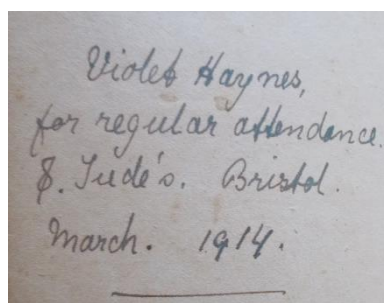 Violet Haynes,
for regular attendance.
S. Jude's. Bristol.
March. 1914.